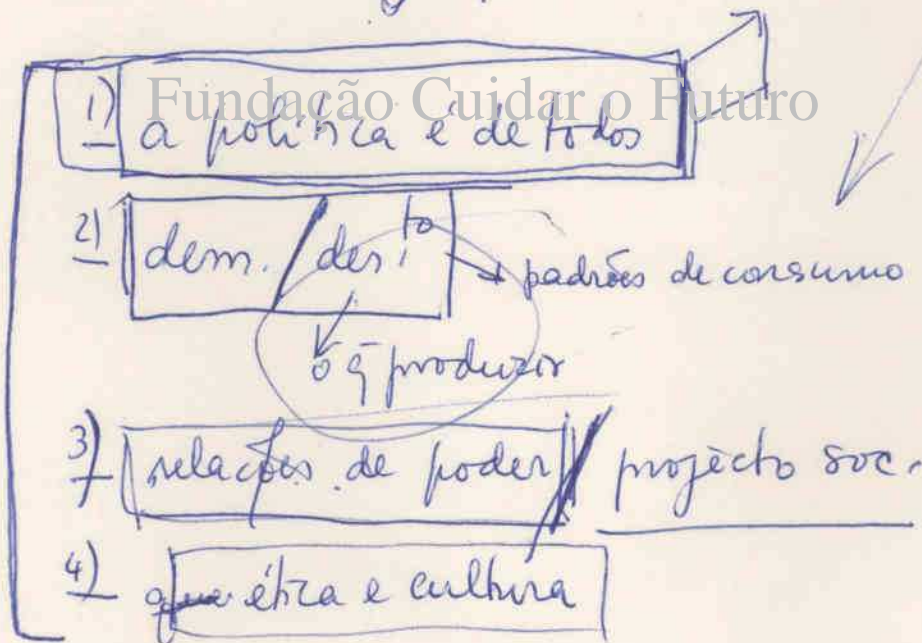 Fundação Cuidar o Futuro
1) a política é de todos
2) dem. / des.to → padrões de consumo
o q̄ produzir
3) relações de poder / projecto soc.
4) que ética e cultura